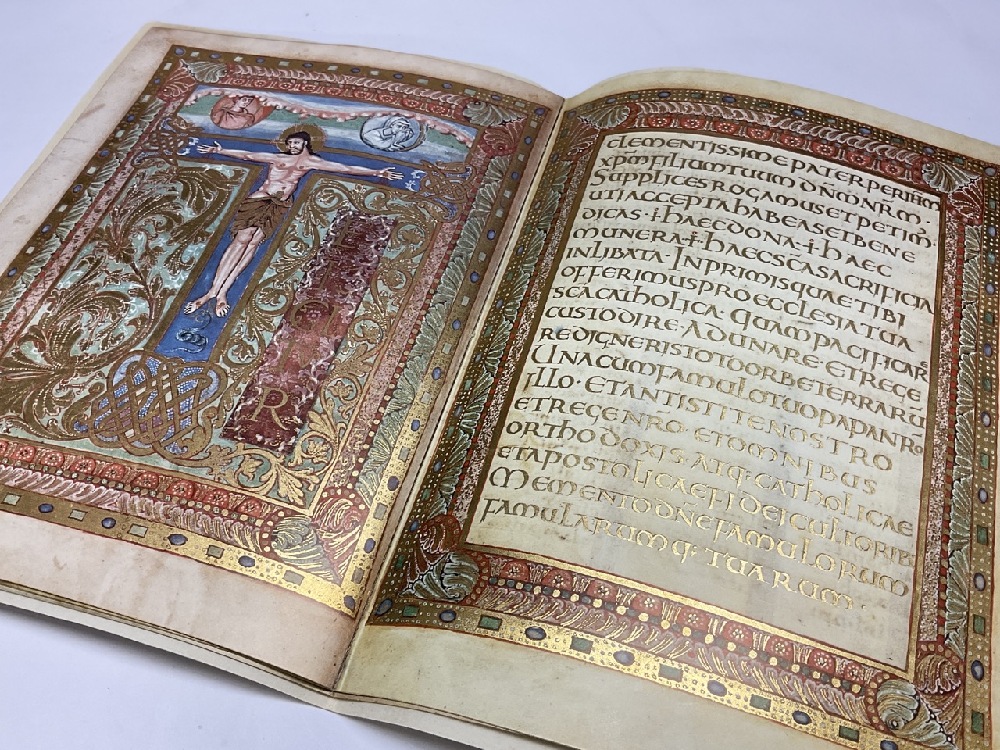 TE IGITUR
clementissime pater per ihm
xpm filium tuum dnm nrm.
Supplices rogamus et petim;
uti accepta habeas et bene
dicas · haec dona · haec
munera · haec sca sacrificia
inlibata · Inprimis quae tibi
offerimus pro ecclesia tua
sca catholica · quam pacificare
custodire · adunare · et rege
re digneris toto orbe terrarum
Una cum famulo tuo papa nro
illo · et antistite nostro
et rege nro · et omnibus
orthodoxis · atq; catholicae
et apostolicae fidei cultorib;
Memento dne famulorum
famularumq; tuarum ·